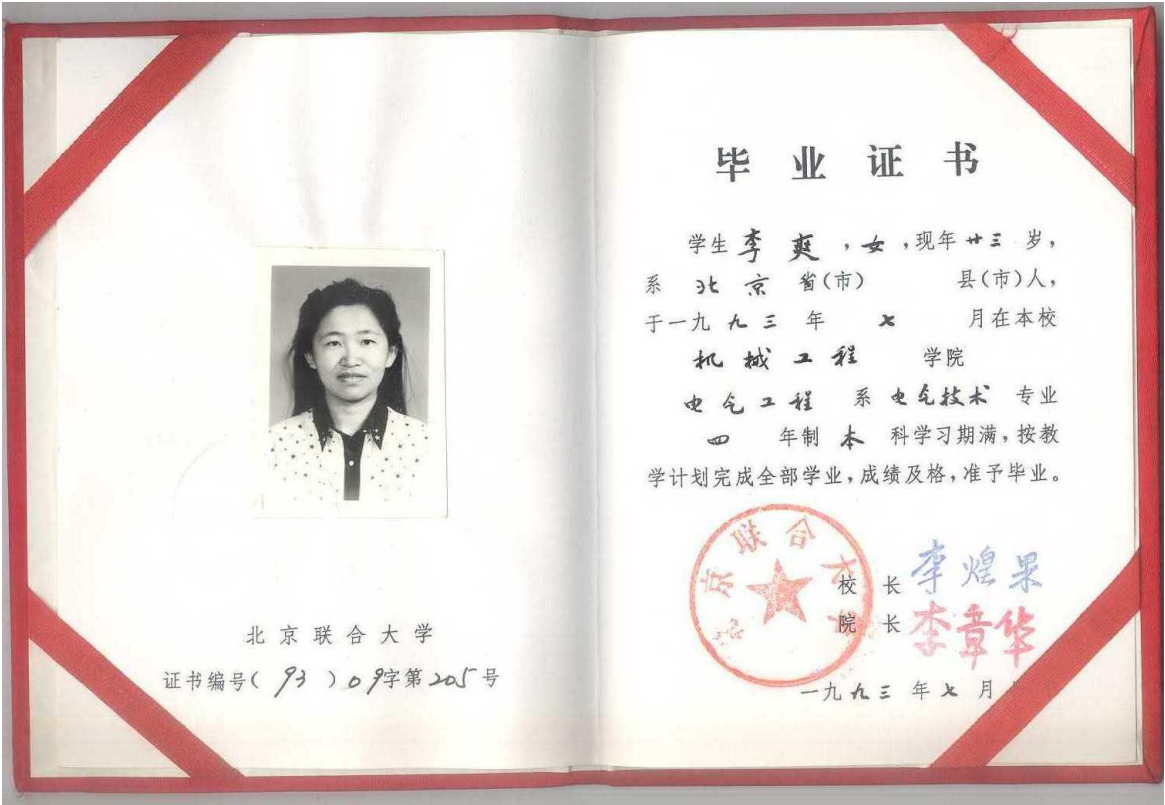 北京联合大学
证书编号(93)09字第205号
毕业证书
学生李爽,女,现年廿三岁,
系北京省(市) 县(市)人,
于一九九三年七月在本校
机械工程 学院
电气工程 系电气技术 专业
四 年制 本 科学习期满,按教
学计划完成全部学业,成绩及格,准予毕业。
北京联合大学
校长 李煌果
院长 李章华
一九九三年七月